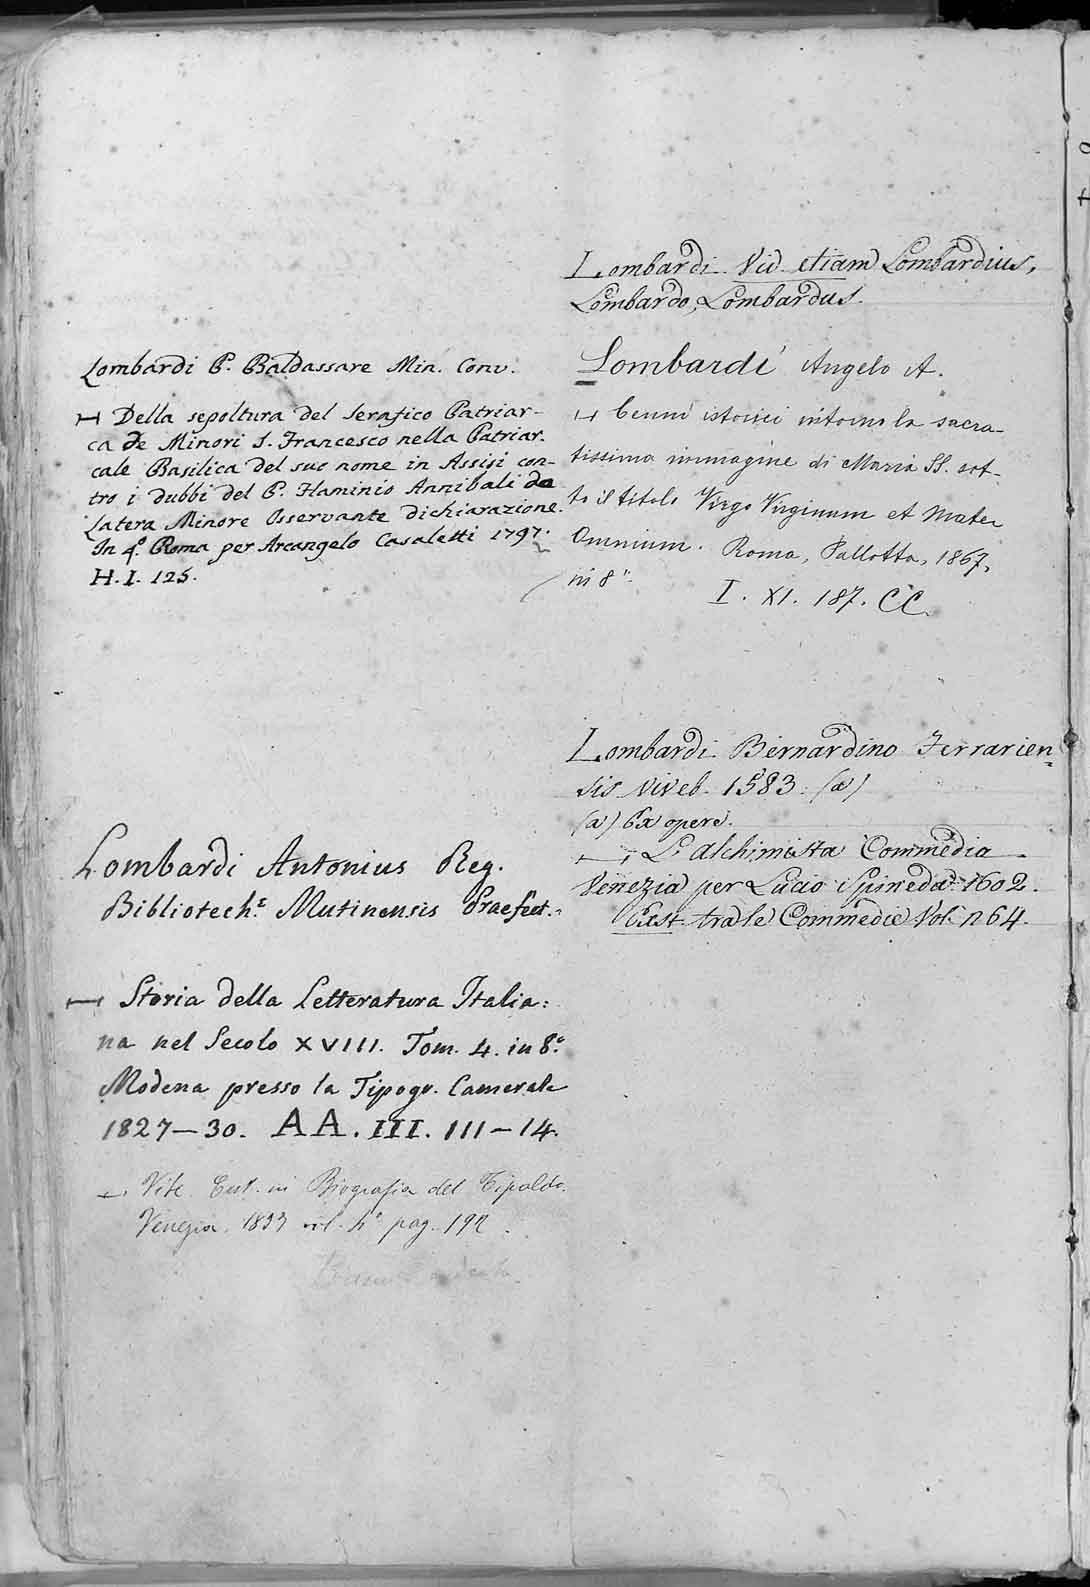 Lombardi P. Baldassare Min. Conv.
⊢ Della sepoltura del Serafico Patriar-
ca de Minori S. Francesco nella Patriar.
cale Basilica del suo nome in Assisi con-
tro i dubbi del P. Flaminio Annibali da
Latera Minore Osservante dichiarazione.
In 4.º Roma per Arcangelo Casaletti 1797.
H. I. 125.
Lombardi Antonius Reg.
Bibliotech.ę Mutinensis Praefect.
⊢ Storia della Letteratura Italia:
na nel Secolo XVIII. Tom. 4. in 8.º
Modena presso la Tipogr. Camerale
1827-30. AA. III. 111-14.
⊢ Vite. Exst. in Biografia del Tipaldo.
Venezia. 1833 vol. pag. 192
Lombardi Vid etiam Lombardius,
Lombardo, Lombardus.
Lombardi Angelo A.
⊢ Cenni istorici intorno la sacra-
tissima immagine di Maria SS. sot-
to il titolo Virgo Virginum et Mater
Omnium. Roma, Pallotta, 1867,
in 8º
I. XI. 187. CC.
Lombardi Bernardino Ferrarien=
sis viveb. 1583. (a)
(a) Ex opere.
⊢ L'Alchimista Commedia
Venezia per Lucio Spineda 1602.
Exst. tra le Commedie Vol. n 64.